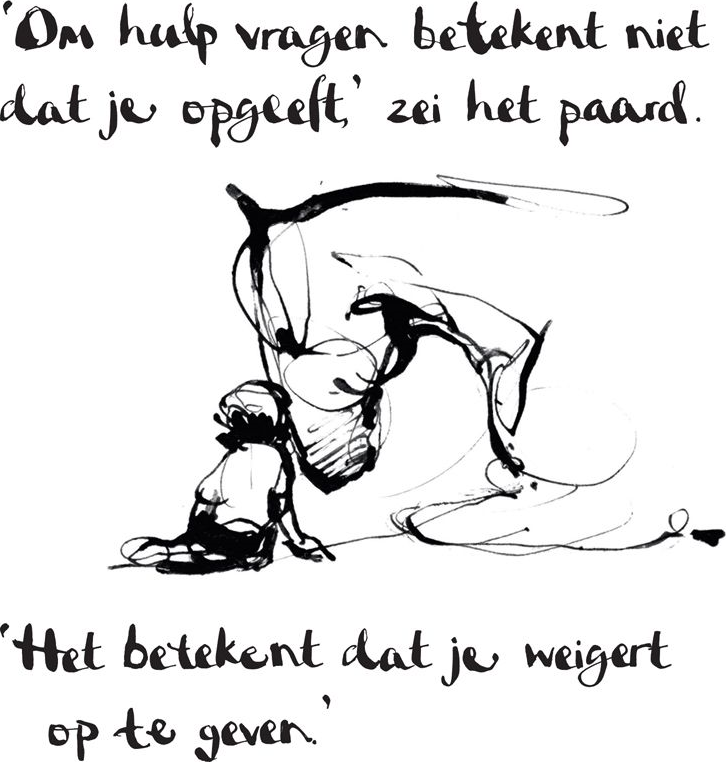 'Om hulp vragen betekent niet
dat je opgeeft,' zei het paard.
'Het betekent dat je weigert
op te geven.'